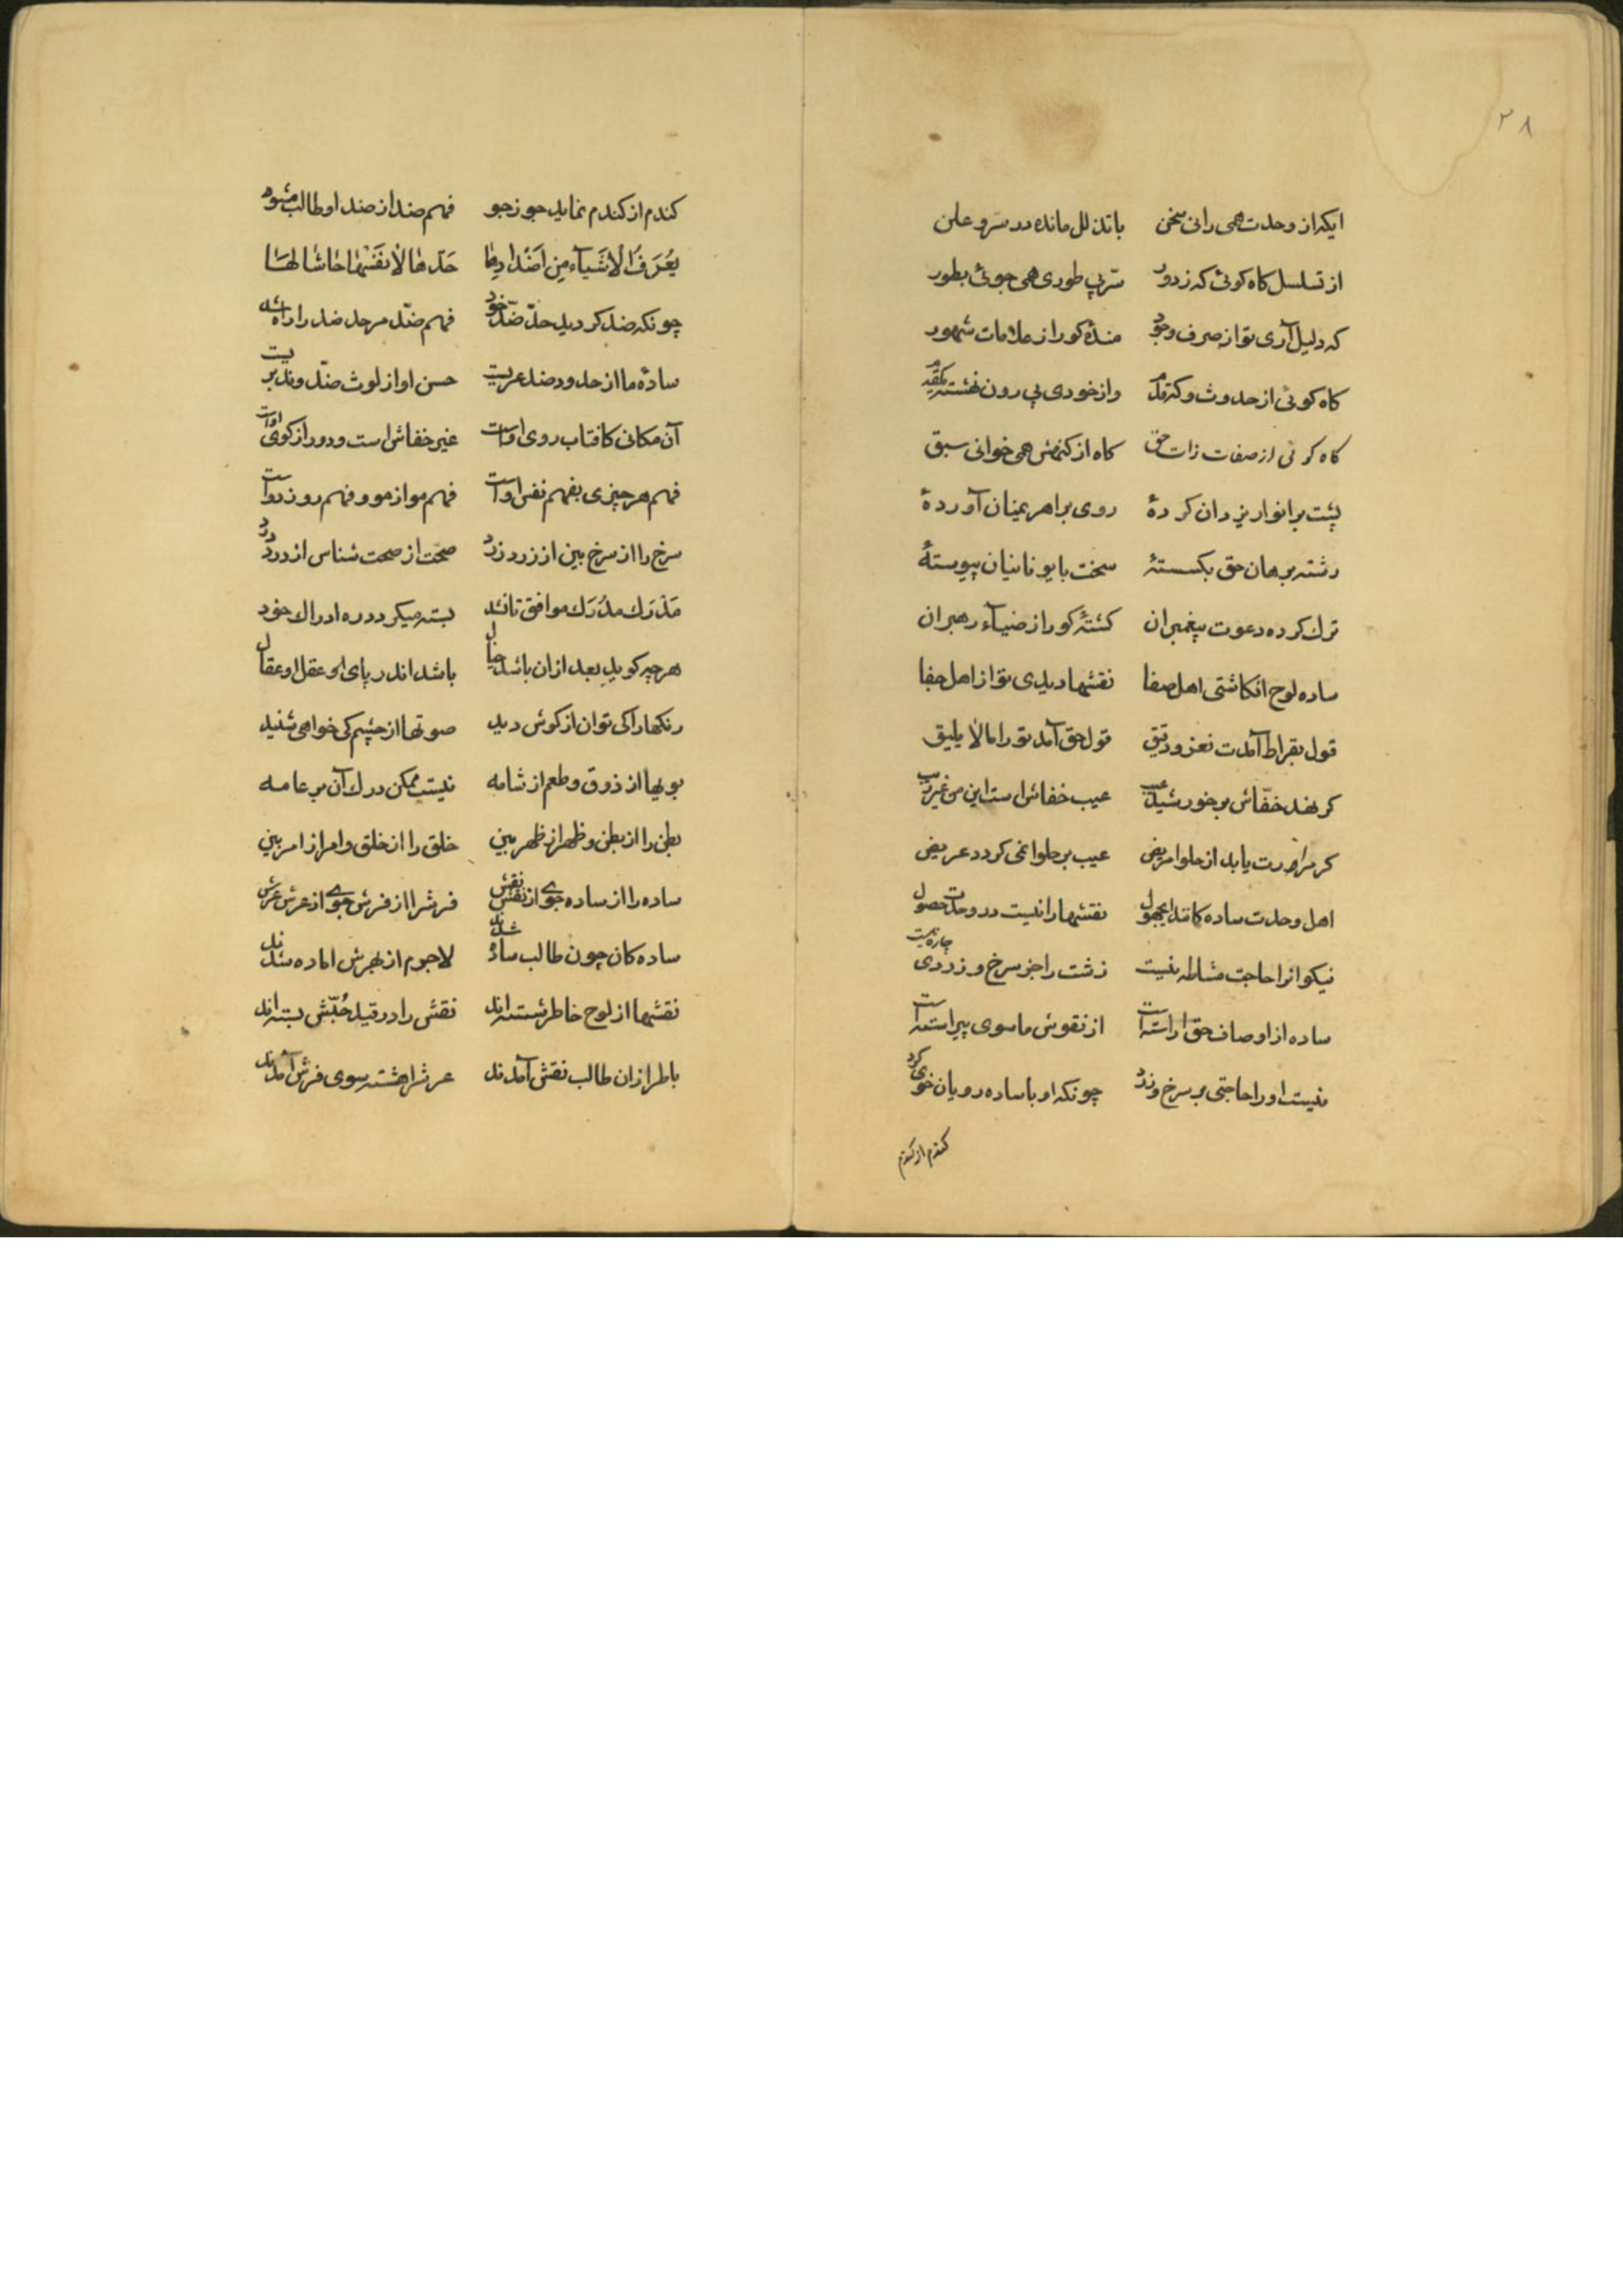 ۲۸
ایکه از وحدت همی رانی سخن باتذلل مانده در سر و علن
از تسلسل کاه کوئی که ز دور سر پی طوری همی جوئی بطور
که دلیل آری تو از صرف وجود کور از علامات شهود
کاه کوئی از حدوث و که قدم واز خودی پی رون
کاه کوئی از صفات ذات حق کاه از کنهش همی خوانی سبق
پشت بر انوار یزدان کردهٔ روی بر اهریمنان آوردهٔ
رشته برهان حق بکسستهٔ سخت با یونانیان پیوستهٔ
ترک کرده دعوت پیغمبران کشتهٔ کور از ضیآء رهبران
ساده لوح انکاشتی اهل صفا نقشها دیدی تو از اهل جفا
قول بقراط آمدت نغز و دقیق قول حق آمد تو را مالا یلیق
کر نهد خفّاش بر خورشید عیب عیب خفاش است این من غیر ریب
کر مرارت یابد از حلوا مریض عیب بر حلوا نمی کردد عریض
اهل وحدت ساده کانند ای جهول نقشها را نیست در وحدت حصول
نیکوانرا حاجت مشاطه نیست زشت را جز سرخ و زردی چاره نیست
ساده از اوصاف حق اراسته است از نقوش ماسوی پیراسته است
نیست اورا حاجتی بر سرخ و زرد چونکه او با ساده رویان خوی کرد
کندم از کندم
کندم از کندم نماید جو ز جو فهم ضد از ضد او طالب مشو
یُعْرَفُ الْاَشیآء مِن اَضْدادِها حَدّها لاٰ نفسَها حاشا لها
چونکه ضد کردید حدّ ضدّ خود فهم ضدّ مر حد ضد را راه شد
سادهٔ ما از حد و ضد عریست حسن او از لوث ضدّ و ند بریست
آن مکانی کافتاب روی اوست غیر خفاش است و دور از کوی اوست
فهم هر چیزی بفهم نفس او است فهم مو از مو و فهم رو ز رواست
سرخ را از سرخ بین از زرد زرد صحّت از صحت شناس از درد درد
مَدْرَک مدْرَک موافق تا نشد بسته میکردد ره ادراک خود
هر چه کوید بعد از ان باشد خیال باشد اندر پای او عقل او عقال
رنکها را کی توان از کوش دید صوتها از چشم کی خواهی شنید
بویها از ذوق و طعم از شامه نیست ممکن درک آن بر عامه
بطن را از بطن و ظهر از ظهر بین خلق را از خلق و امر از امر بین
ساده را از ساده جوی از نقش نقش فرش را از فرش جوی از عرش عرش
ساده کان چون طالب ساده شدند لاجرم از بهرش اماده شدند
نقشها از لوح خاطر شسته اند نقش را در قید حُبّش بسته اند
باطرازان طالب نقش آمدند عرش را هشته سوی فرش آمدند